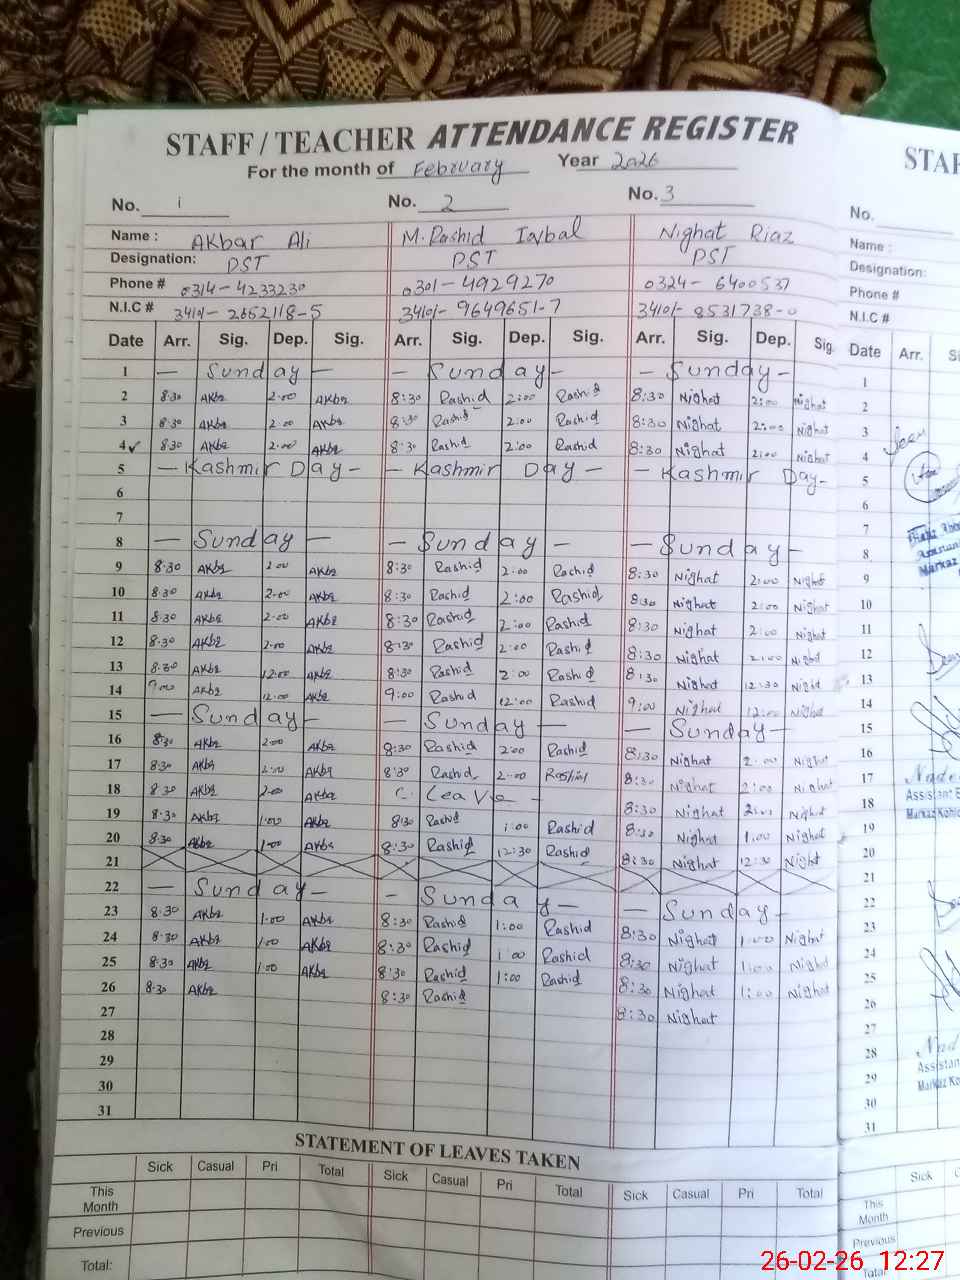 STAFF / TEACHER ATTENDANCE REGISTER
For the month of February Year 2026
No. 1 No. 2 No. 3
Name : Akbar Ali M. Rashid Iqbal Nighat Riaz
Designation: PST PST PST
Phone # 0314-4233230 0301-4929270 0324-6400537
N.I.C # 34101-2652118-5 34101-9649651-7 34101-8531738-0
Date Arr. Sig. Dep. Sig. Arr. Sig. Dep. Sig. Arr. Sig. Dep. Sig.
1 — Sunday — — Sunday — — Sunday —
2 8:30 Akbr 2:00 Akbr 8:30 Rashid 2:00 Rashid 8:30 Nighat 2:00 Nighat
3 8:30 Akbr 2:00 Akbr 8:30 Rashid 2:00 Rashid 8:30 Nighat 2:00 Nighat
4 8:30 Akbr 2:00 Akbr 8:30 Rashid 2:00 Rashid 8:30 Nighat 2:00 Nighat
5 — Kashmir Day — — Kashmir Day — — Kashmir Day —
6
7
8 — Sunday — — Sunday — — Sunday —
9 8:30 Akbr 2:00 Akbr 8:30 Rashid 2:00 Rashid 8:30 Nighat 2:00 Nighat
10 8:30 Akbr 2:00 Akbr 8:30 Rashid 2:00 Rashid 8:30 Nighat 2:00 Nighat
11 8:30 Akbr 2:00 Akbr 8:30 Rashid 2:00 Rashid 8:30 Nighat 2:00 Nighat
12 8:30 Akbr 2:00 Akbr 8:30 Rashid 2:00 Rashid 8:30 Nighat 2:00 Nighat
13 8:30 Akbr 12:00 Akbr 8:30 Rashid 2:00 Rashid 8:30 Nighat 12:30 Nighat
14 9:00 Akbr 12:00 Akbr 9:00 Rashid 12:00 Rashid 9:00 Nighat 12:00 Nighat
15 — Sunday — — Sunday — — Sunday —
16 8:30 Akbr 2:00 Akbr 8:30 Rashid 2:00 Rashid 8:30 Nighat 2:00 Nighat
17 8:30 Akbr 2:00 Akbr 8:30 Rashid 2:00 Rashid 8:30 Nighat 2:00 Nighat
18 8:30 Akbr 2:00 Akbr C. Leave — 8:30 Nighat 2:00 Nighat
19 8:30 Akbr 1:00 Akbr 8:30 Rashid 1:00 Rashid 8:30 Nighat 1:00 Nighat
20 8:30 Akbr 1:00 Akbr 8:30 Rashid 12:30 Rashid 8:30 Nighat 12:30 Night
21
22 — Sunday — — Sunday — — Sunday —
23 8:30 Akbr 1:00 Akbr 8:30 Rashid 1:00 Rashid 8:30 Nighat 1:00 Nighat
24 8:30 Akbr 1:00 Akbr 8:30 Rashid 1:00 Rashid 8:30 Nighat 1:00 Nighat
25 8:30 Akbr 1:00 Akbr 8:30 Rashid 1:00 Rashid 8:30 Nighat 1:00 Nighat
26 8:30 Akbr 8:30 Rashid 8:30 Nighat
27
28
29
30
31
STATEMENT OF LEAVES TAKEN
Sick Casual Pri Total Sick Casual Pri Total Sick Casual Pri Total
This Month
Previous
Total:
No.
Name :
Designation:
Phone #
N.I.C #
Date Arr.
1
2
3
4
5
6
7
8
Markaz
9
10
11
12
13
14
15
16
17
Assistant
18
19
20
21
22
23
24
25
26
27
28
29
30
31
Sick
This Month
Previous
Total
26-02-26 12:27